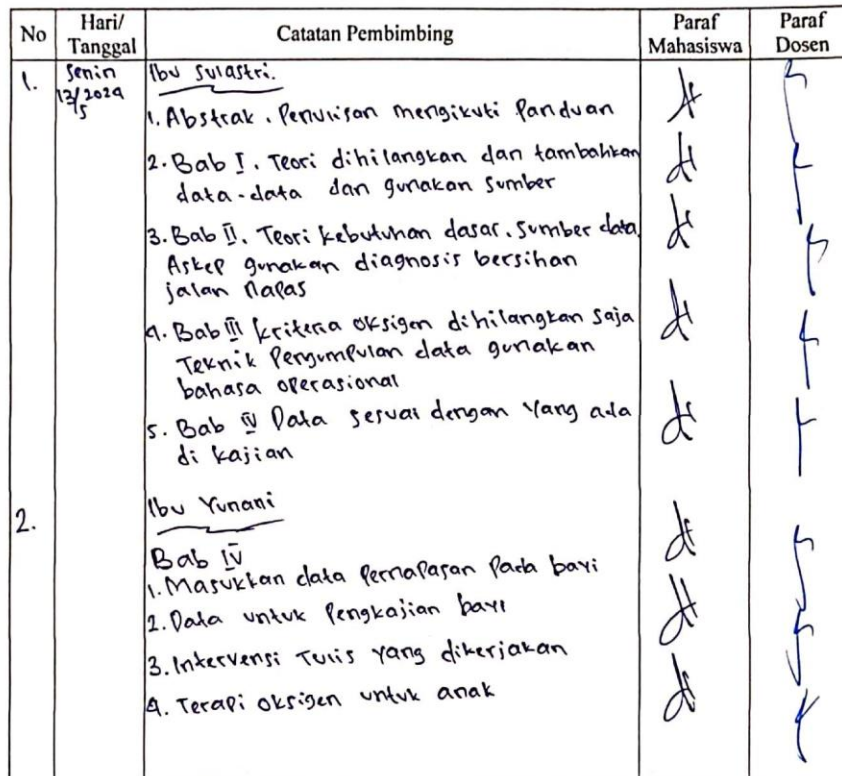 No Hari/ Tanggal Catatan Pembimbing Paraf Mahasiswa Paraf Dosen
1. Senin 13/5 2024 Ibu Sulastri.
1. Abstrak. Penulisan mengikuti Panduan
2. Bab I. Teori dihilangkan dan tambahkan
data-data dan gunakan sumber
3. Bab II. Teori kebutuhan dasar. sumber data
Askep gunakan diagnosis bersihan
jalan napas
4. Bab III kriteria oksigen dihilangkan saja
Teknik Pengumpulan data gunakan
bahasa operasional
5. Bab IV Data sesuai dengan yang ada
di kajian
2. Ibu Yunani
Bab IV
1. Masukkan data pernapasan pada bayi
2. Data untuk pengkajian bayi
3. Intervensi Tulis yang dikerjakan
4. Terapi oksigen untuk anak